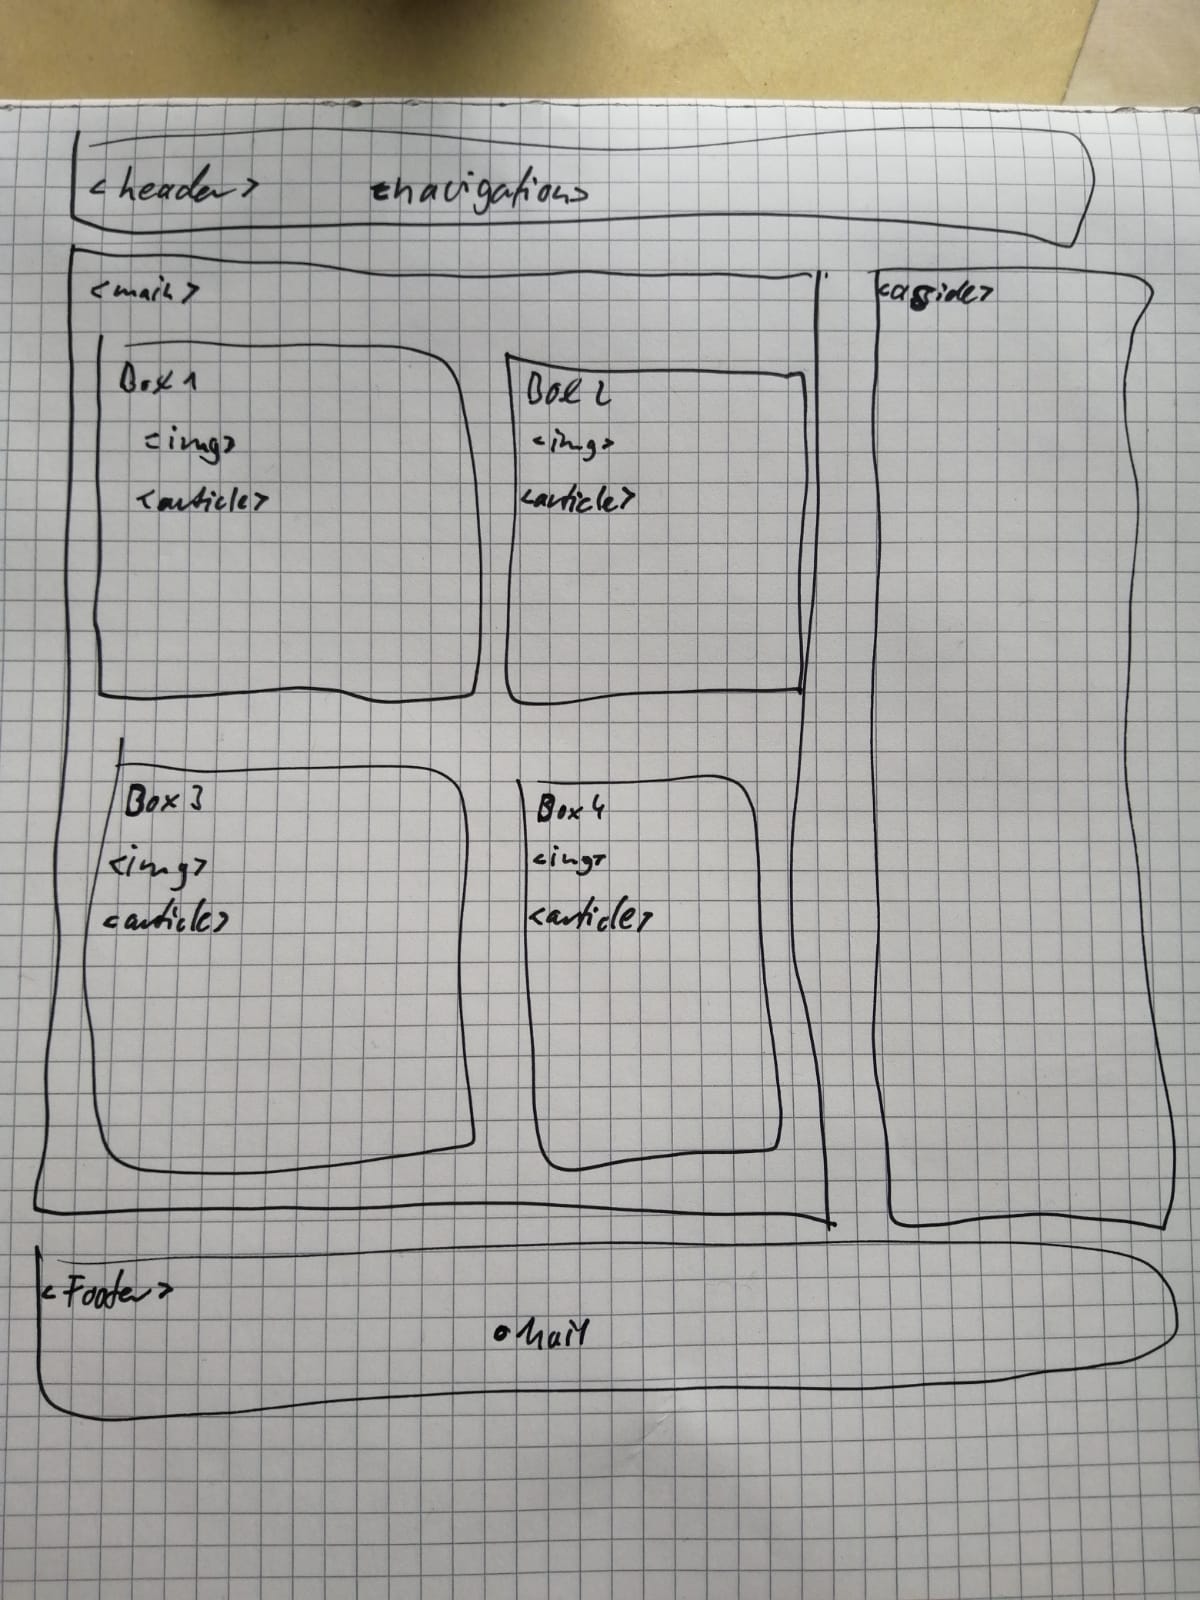 <header> <navigation>
<main>
<aside>
Box 1
<img>
<article>
Box 2
<img>
<article>
Box 3
<img>
<article>
Box 4
<img>
<article>
<Footer>
mail